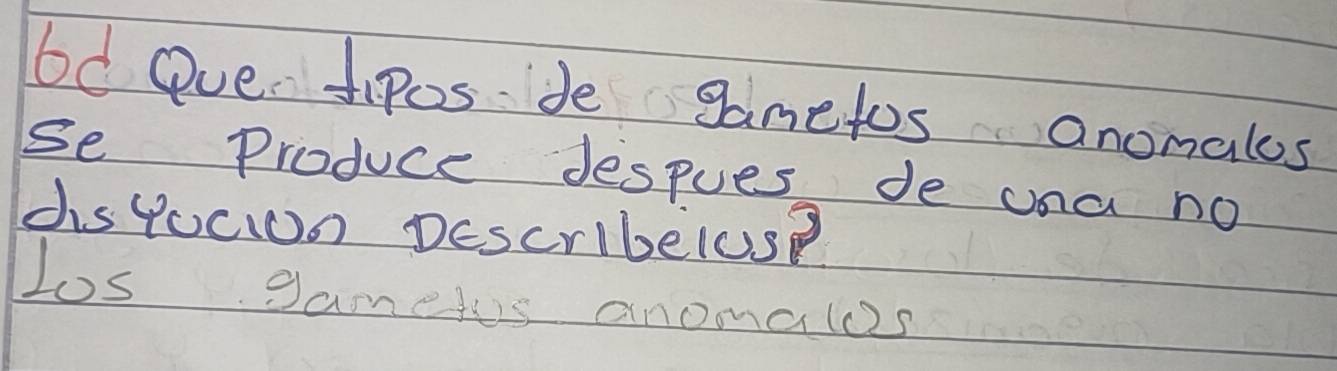 6d Que tipos de gametos anomalos
se produce despues de una no
disyucion Describelos?
Los gametos anomalos